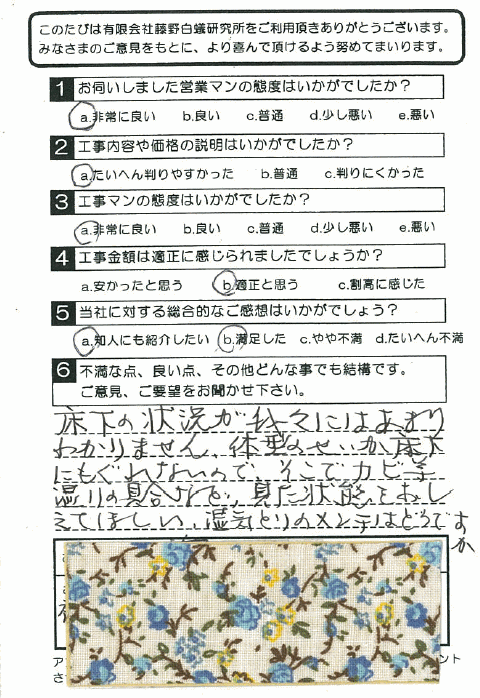 このたびは有限会社藤野白蟻研究所をご利用頂きありがとうございます。
みなさまのご意見をもとに、より喜んで頂けるよう努めてまいります。
1 お伺いしました営業マンの態度はいかがでしたか？
a.非常に良い b.良い c.普通 d.少し悪い e.悪い
2 工事内容や価格の説明はいかがでしたか？
a.たいへん判りやすかった b.普通 c.判りにくかった
3 工事マンの態度はいかがでしたか？
a.非常に良い b.良い c.普通 d.少し悪い e.悪い
4 工事金額は適正に感じられましたでしょうか？
a.安かったと思う b.適正と思う c.割高に感じた
5 当社に対する総合的なご感想はいかがでしょう？
a.知人にも紹介したい b.満足した c.やや不満 d.たいへん不満
6 不満な点、良い点、その他どんな事でも結構です。
ご意見、ご要望をお聞かせ下さい。
床下の状況が我々にはあまり
わかりません、体型のせいか床下
にもぐれないので、そこでカビ等
湿りの具合など、見た状態をおし
えてほしい、湿気とりのメンテはどうですか
ア
ント
さ